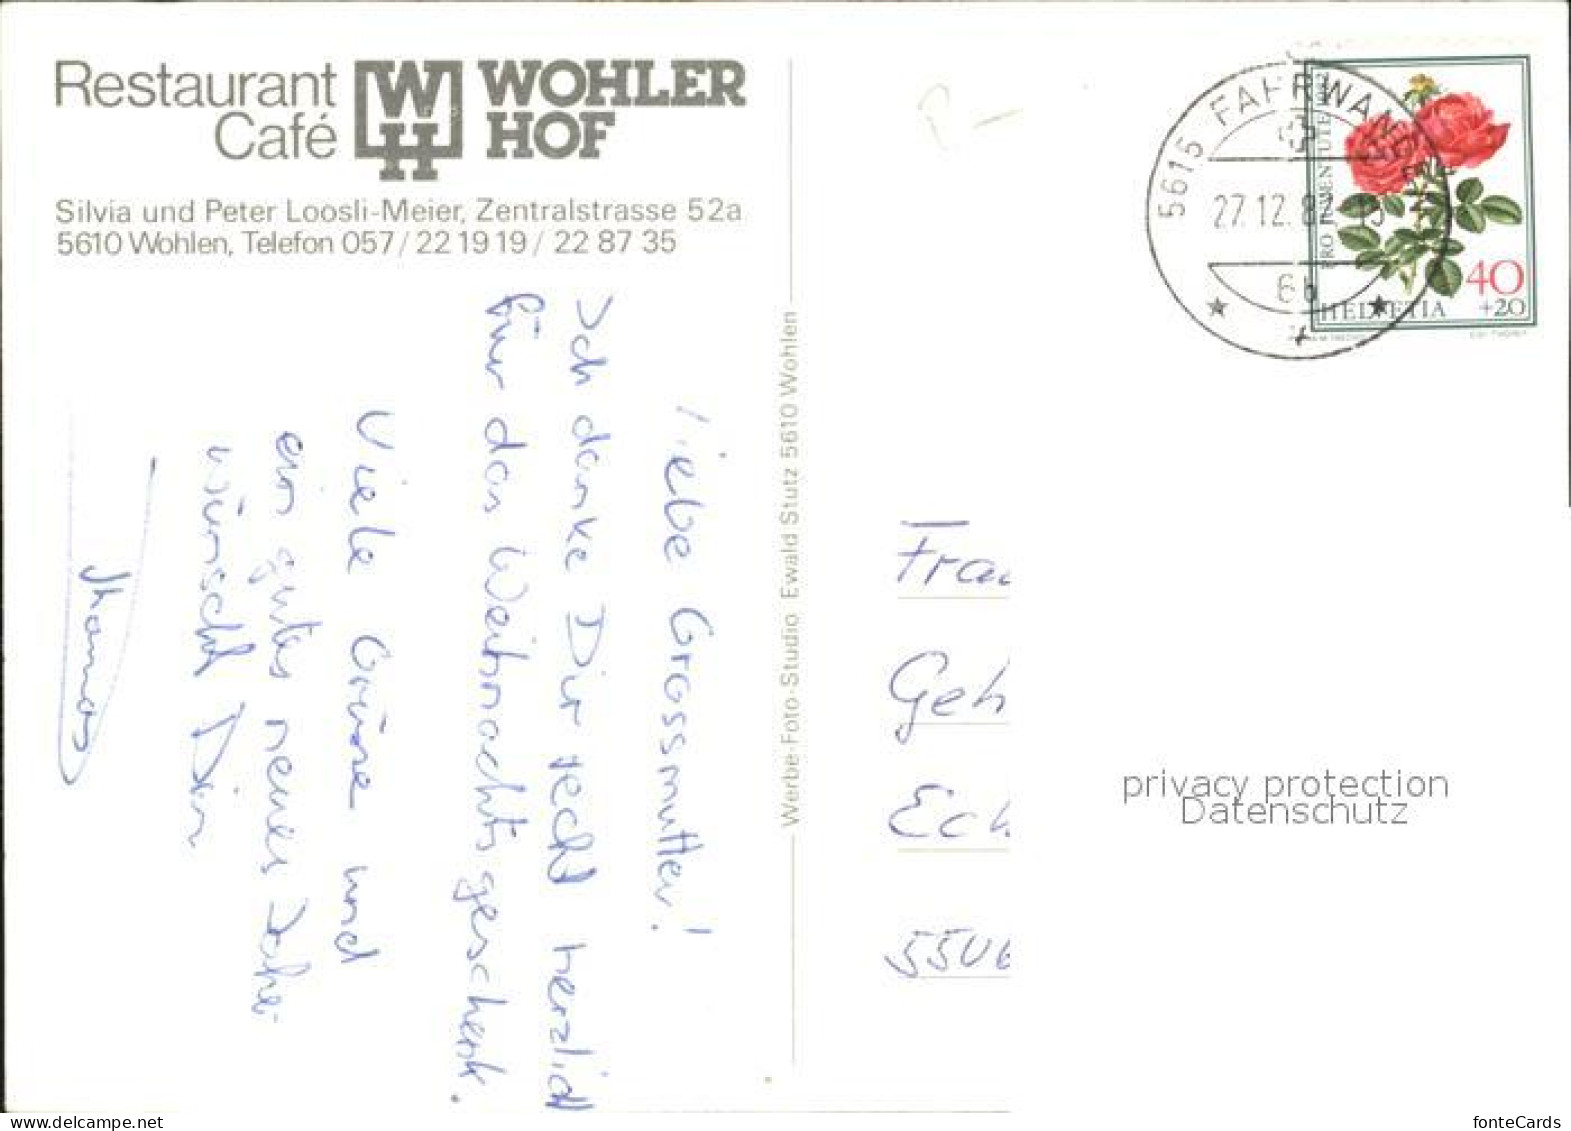 Restaurant
Café
WH
WOHLER
HOF
Silvia und Peter Loosli-Meier, Zentralstrasse 52a
5610 Wohlen, Telefon 057/22 19 19/ 22 87 35
Liebe Grossmutter!
Ich danke Dir recht herzlich
für das Weihnachtsgeschenk.
Viele Grüsse und
ein gutes neues Jahr
wünscht Dir
Thomas
Werbe-Foto-Studio Ewald Stutz 5610 Wohlen
5615 FAHRWANGEN
27.12.8
PRO JUVENTUTE 1982
HELVETIA
40
+20
Frau
Geh
Ech
5506
privacy protection
Datenschutz
www.delcampe.net
fonteCards